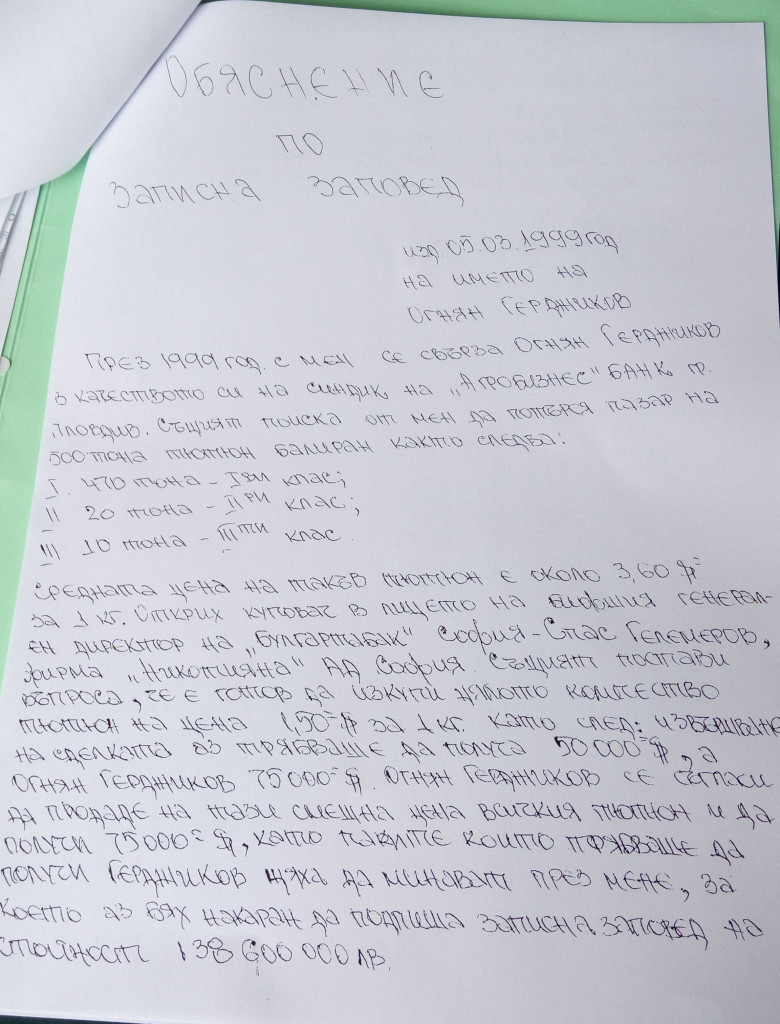 ОБЯСНЕНИЕ
ПО
ЗАПИСНА ЗАПОВЕД
изд. 05.03.1999 год
на името на
Огнян Герджиков
През 1999 год. с мен се свърза Огнян Герджиков
в качеството си на синдик на „Агробизнес" БАНК гр.
Пловдив. Същият поиска от мен да потърся пазар на
500 тона тютюн балиран както следва:
I. 470 тона – Iви клас;
II 20 тона – IIри клас;
III 10 тона – IIIти клас.
Средната цена на такъв тютюн е около 3,60 $
за 1 кг. Открих купувач в лицето на бившия генерал-
ен директор на „Булгартабак" София – Спас Гелемеров,
фирма „Никотияна" АД София. Същият постави
въпроса, че е готов да изкупи цялото количество
тютюн на цена 1,50 $ за 1 кг. като след: извършване
на сделката аз трябваше да получа 50 000 $, а
Огнян Герджиков 75 000 $. Огнян Герджиков се съгласи
да продаде на тази смешна цена всичкия тютюн и да
получи 75 000 $, като парите които трябваше да
получи Герджиков щяха да минават през мене, за
което аз бях накаран да подпиша записна заповед на
стойност 138 600 000 лв.